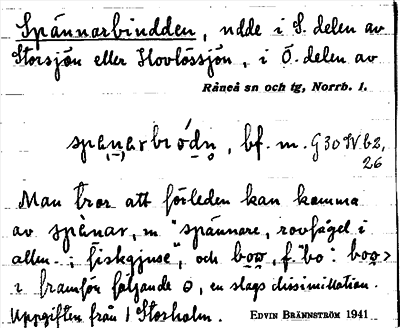 Spännarbindden, udde i S. delen av
Storsjön eller Hovlössjön, i Ö. delen av
Råneå sn och tg, Norrb. l.
bf. m. G 30 IV b 2,
26
Man tror att förleden kan komma
av spänar, m "spännare, rovfågel i
allm.; fiskgjuse", och f "bo:
i framför följande o, en slags dissimilation.
Uppgiften från 1 Storholm. EDVIN BRÄNNSTRÖM 1941